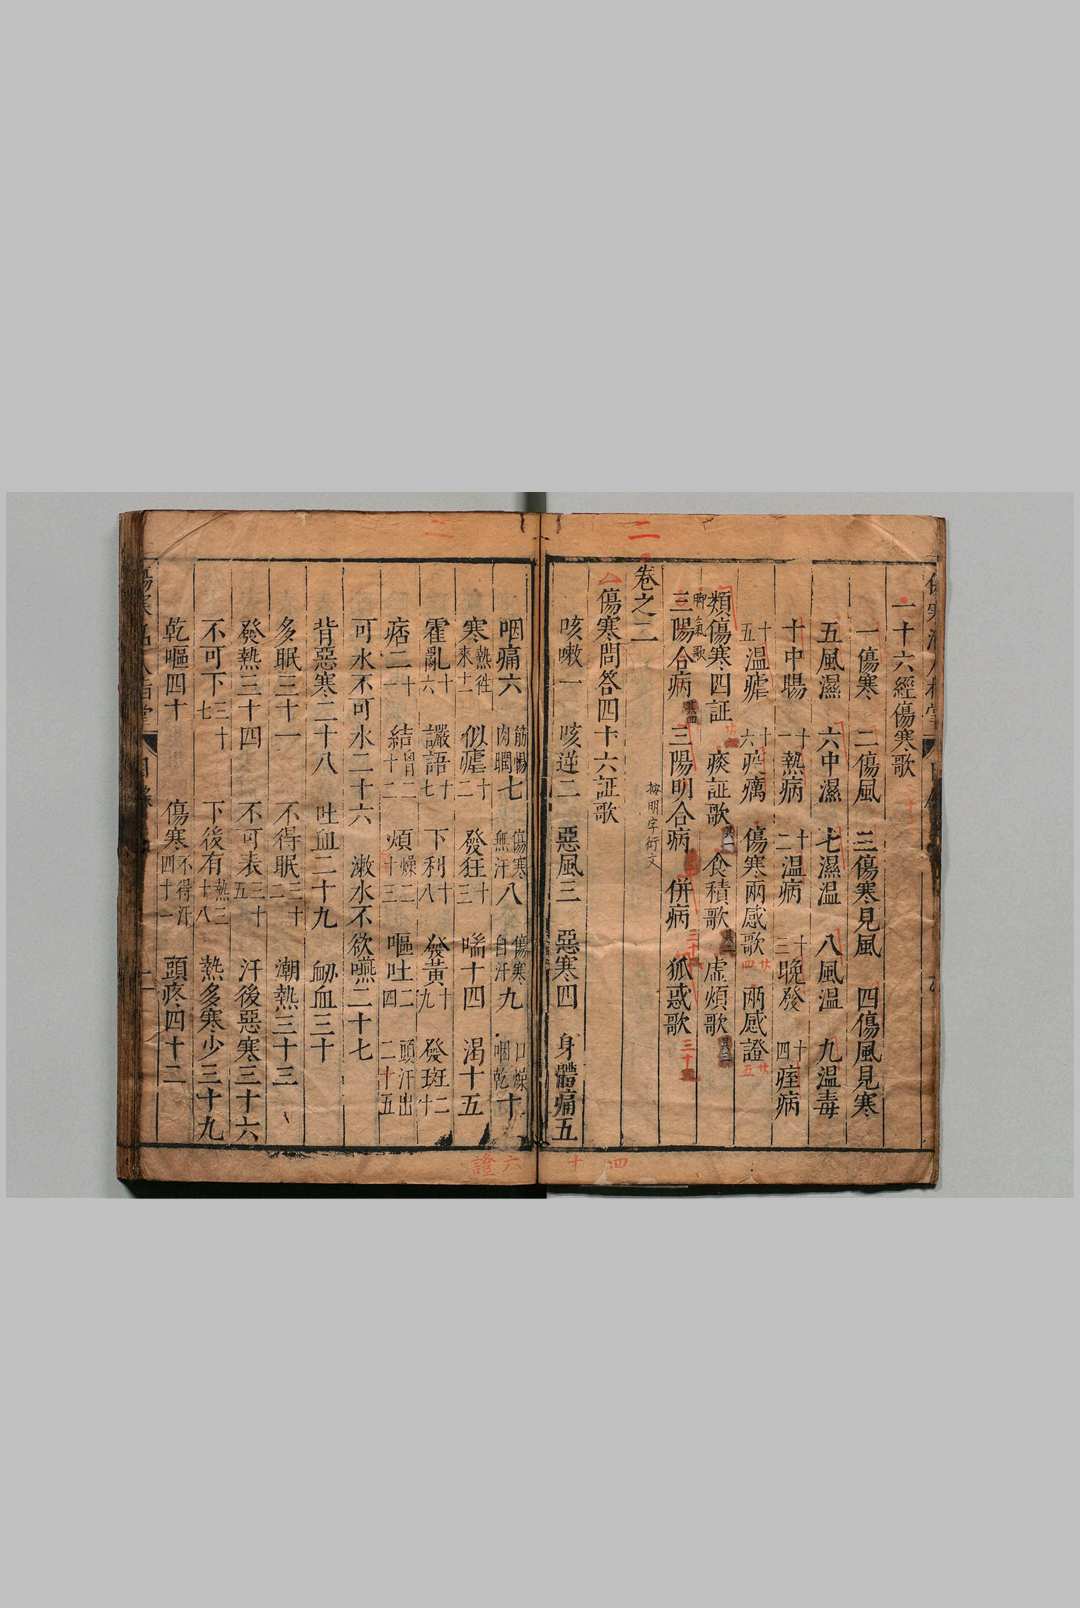 一十六經傷寒歌
一傷寒 二傷風 三傷寒見風 四傷風見寒
五風濕 六中濕 七濕温 八風温 九温毒
十中暍 十一熱病 十二温病 十三晚發 十四痓病
十五温瘧 十六疫癘 傷寒兩感歌 四廿 兩感證 廿五
類傷寒四証 痰証歌 其一 食積歌 其二 虛煩歌 其三
脚氣歌 其四
三陽合病 三陽明合病 併病 三十 狐惑歌 三十五
按明字衍文
卷之二
傷寒問答四十六証歌
咳嗽一 咳逆二 惡風三 惡寒四 身體痛五
咽痛六 筋惕肉瞤七 傷寒無汗八 傷寒自汗九 口燥咽乾十
寒熱徃來十一 似瘧十二 發狂十三 喘十四 渴十五
霍亂十六 讝語十七 下利十八 發黃十九 發斑二十
痞二十一 結胷二十二 煩燥二十三 嘔吐二十四 頭汗出二十五
可水不可水二十六 漱水不欲嚥二十七
背惡寒二十八 吐血二十九 衂血三十
多眠三十一 不得眠三十二 潮熱三十三
發熱三十四 不可表三十五 汗後惡寒三十六
不可下三十七 下後有熱三十八 熱多寒少三十九
乾嘔四十 傷寒不得汗四十一 頭疼四十二
二
二
四十六證